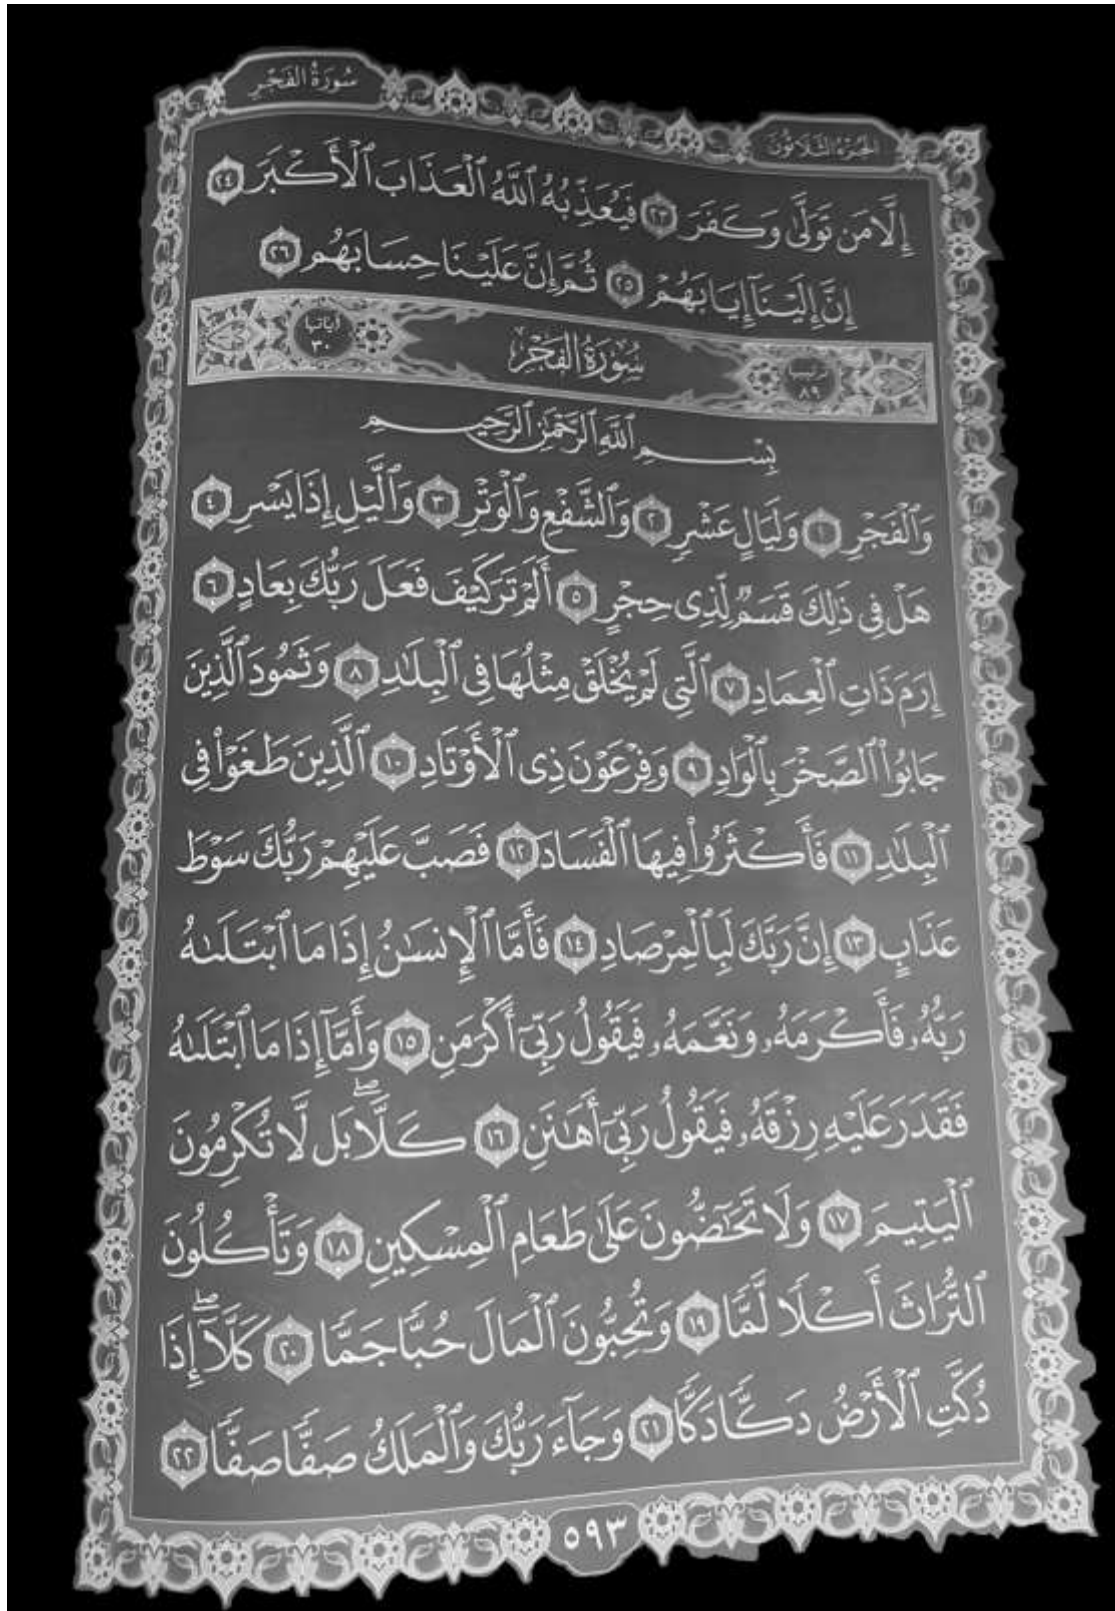 الجزء الثلاثون
سورة الفجر
إِلَّا مَن تَوَلَّىٰ وَكَفَرَ ٢٣ فَيُعَذِّبُهُ ٱللَّهُ ٱلْعَذَابَ ٱلْأَكْبَرَ ٢٤
إِنَّ إِلَيْنَآ إِيَابَهُمْ ٢٥ ثُمَّ إِنَّ عَلَيْنَا حِسَابَهُم ٢٦
ترتيبها ٨٩ سُورَةُ الفَجْرِ آياتها ٣٠
بِسْمِ ٱللَّهِ ٱلرَّحْمَٰنِ ٱلرَّحِيمِ
وَٱلْفَجْرِ ١ وَلَيَالٍ عَشْرٍ ٢ وَٱلشَّفْعِ وَٱلْوَتْرِ ٣ وَٱلَّيْلِ إِذَا يَسْرِ ٤
هَلْ فِى ذَٰلِكَ قَسَمٌ لِّذِى حِجْرٍ ٥ أَلَمْ تَرَ كَيْفَ فَعَلَ رَبُّكَ بِعَادٍ ٦
إِرَمَ ذَاتِ ٱلْعِمَادِ ٧ ٱلَّتِى لَمْ يُخْلَقْ مِثْلُهَا فِى ٱلْبِلَٰدِ ٨ وَثَمُودَ ٱلَّذِينَ
جَابُوا۟ ٱلصَّخْرَ بِٱلْوَادِ ٩ وَفِرْعَوْنَ ذِى ٱلْأَوْتَادِ ١٠ ٱلَّذِينَ طَغَوْا۟ فِى
ٱلْبِلَٰدِ ١١ فَأَكْثَرُوا۟ فِيهَا ٱلْفَسَادَ ١٢ فَصَبَّ عَلَيْهِمْ رَبُّكَ سَوْطَ
عَذَابٍ ١٣ إِنَّ رَبَّكَ لَبِٱلْمِرْصَادِ ١٤ فَأَمَّا ٱلْإِنسَٰنُ إِذَا مَا ٱبْتَلَىٰهُ
رَبُّهُۥ فَأَكْرَمَهُۥ وَنَعَّمَهُۥ فَيَقُولُ رَبِّىٓ أَكْرَمَنِ ١٥ وَأَمَّآ إِذَا مَا ٱبْتَلَىٰهُ
فَقَدَرَ عَلَيْهِ رِزْقَهُۥ فَيَقُولُ رَبِّىٓ أَهَٰنَنِ ١٦ كَلَّا ۖ بَل لَّا تُكْرِمُونَ
ٱلْيَتِيمَ ١٧ وَلَا تَحَٰٓضُّونَ عَلَىٰ طَعَامِ ٱلْمِسْكِينِ ١٨ وَتَأْكُلُونَ
ٱلتُّرَاثَ أَكْلًا لَّمًّا ١٩ وَتُحِبُّونَ ٱلْمَالَ حُبًّا جَمًّا ٢٠ كَلَّآ ۖ إِذَا
دُكَّتِ ٱلْأَرْضُ دَكًّا دَكًّا ٢١ وَجَآءَ رَبُّكَ وَٱلْمَلَكُ صَفًّا صَفًّا ٢٢
٥٩٣